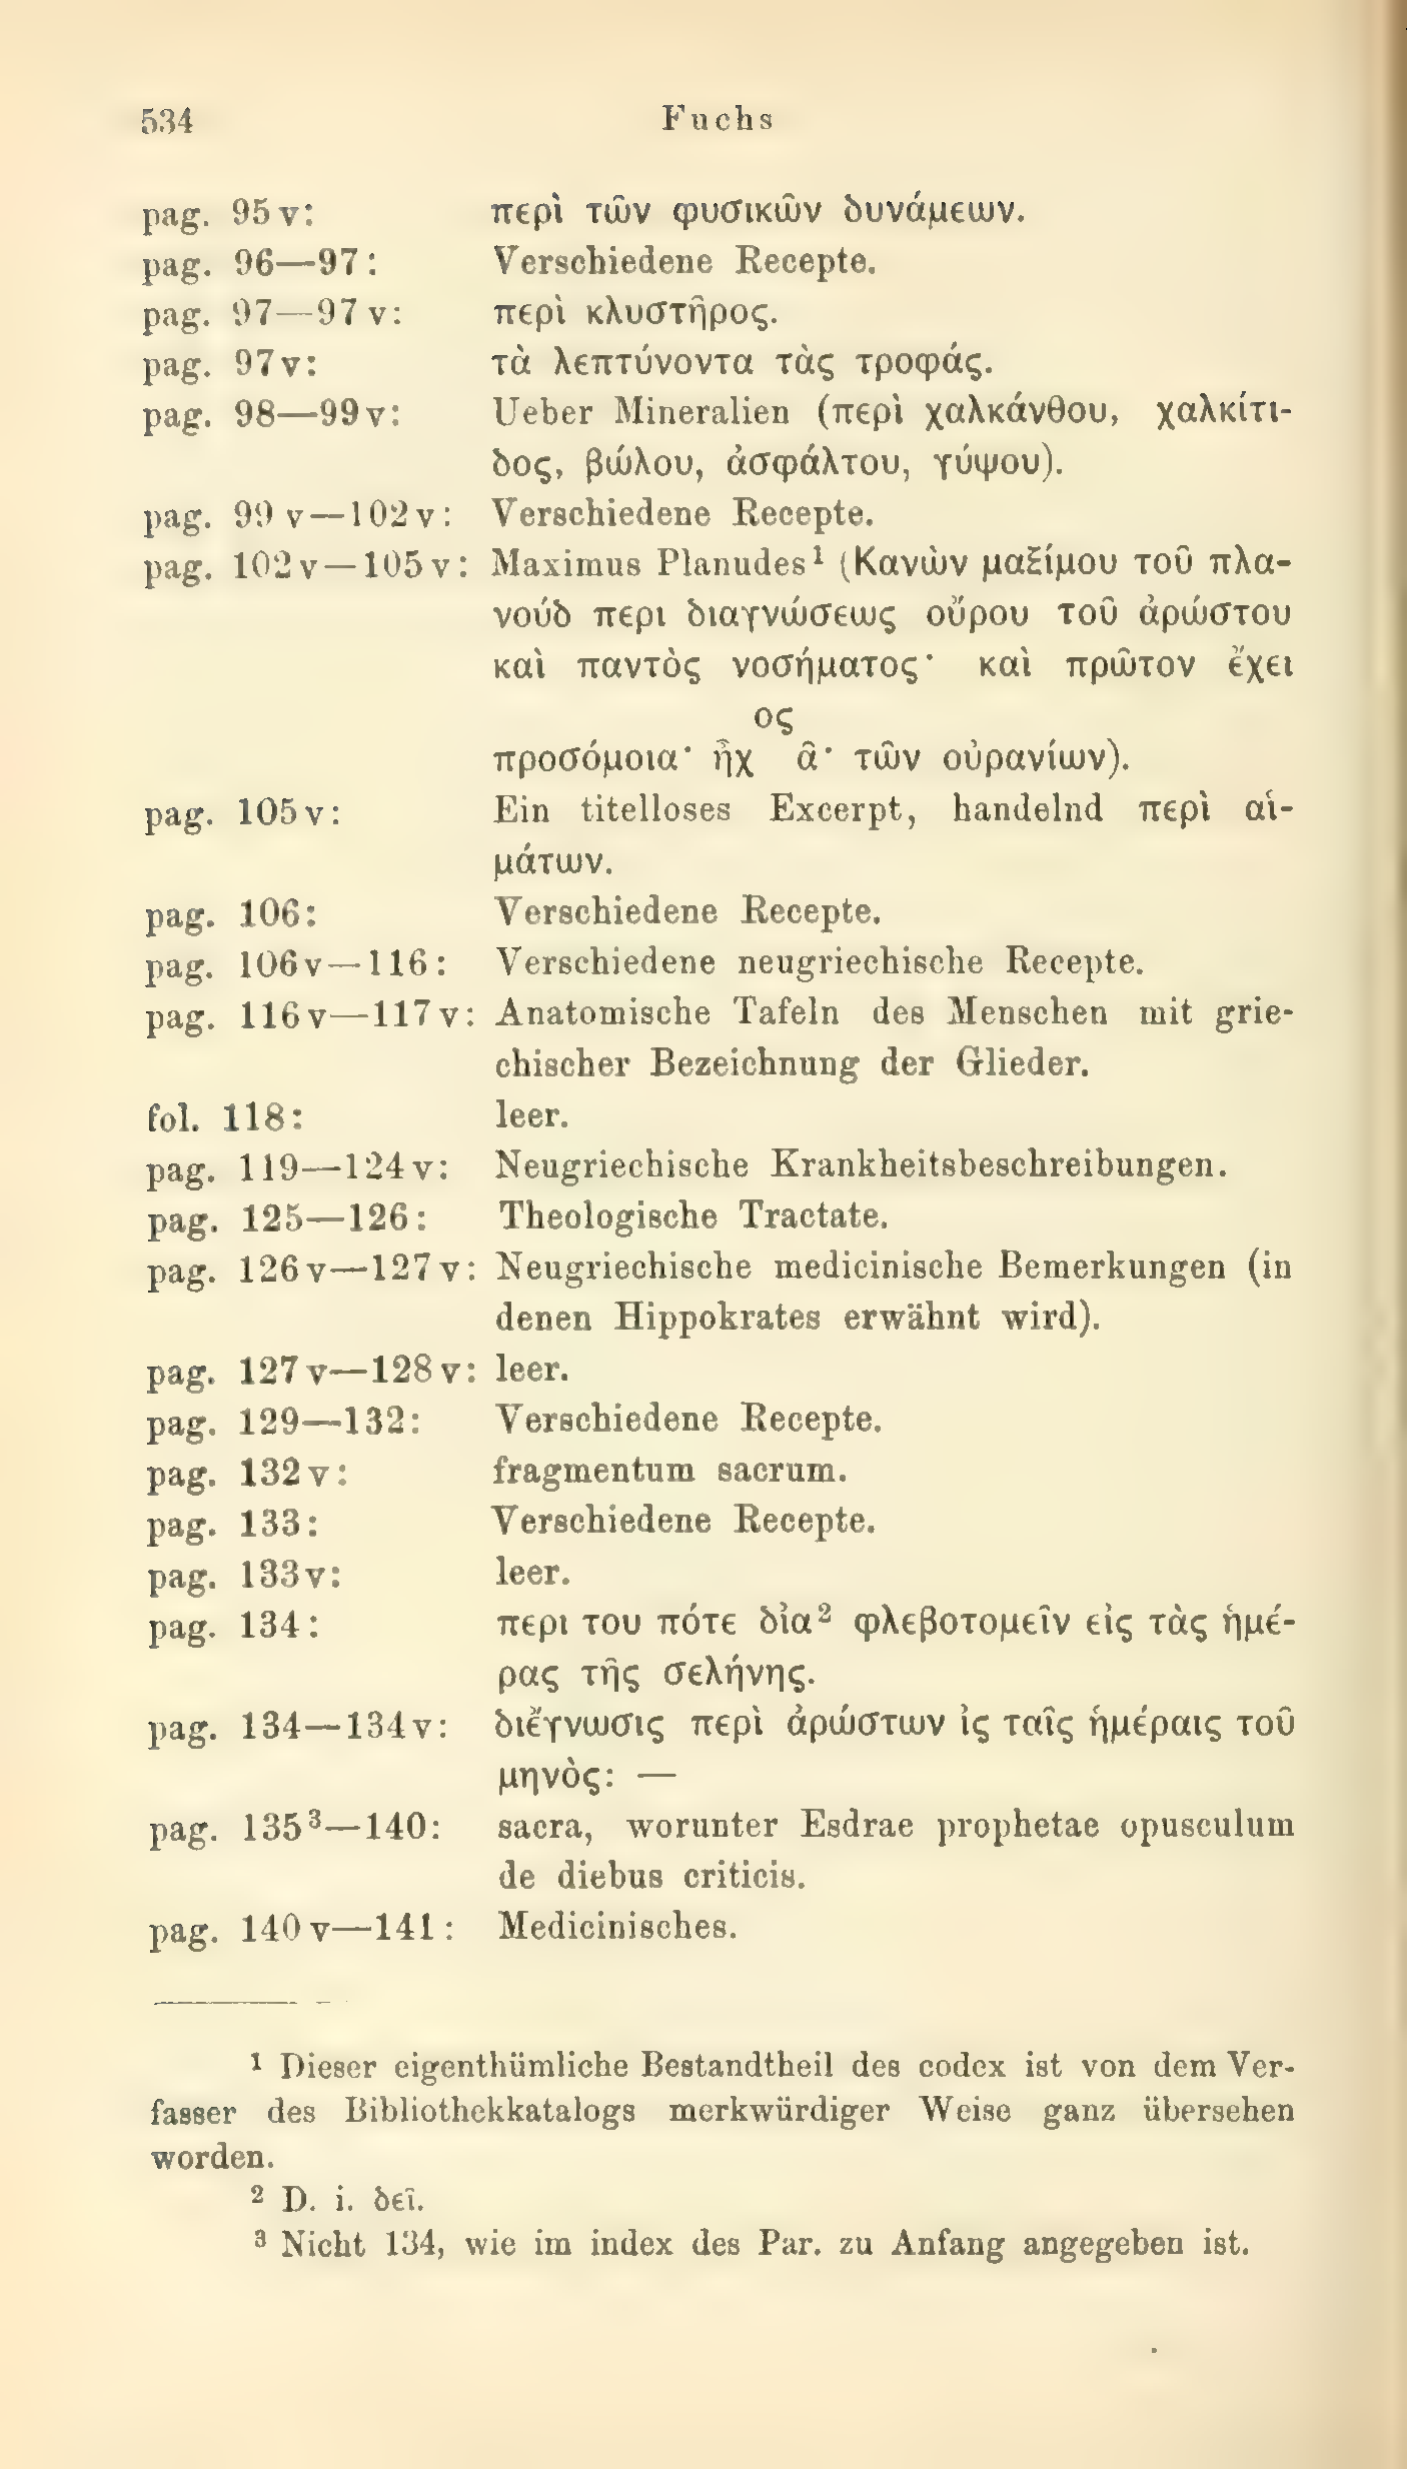 534 Fuchs
pag. 95 v: περὶ τῶν φυσικῶν δυνάμεων.
pag. 96—97: Verschiedene Recepte.
pag. 97—97 v: περὶ κλυστῆρος.
pag. 97 v: τὰ λεπτύνοντα τὰς τροφάς.
pag. 98—99 v: Ueber Mineralien (περὶ χαλκάνθου, χαλκίτι-
δος, βώλου, ἀσφάλτου, γύψου).
pag. 99 v—102 v: Verschiedene Recepte.
pag. 102 v—105 v: Maximus Planudes¹ (Κανὼν μαξίμου τοῦ πλα-
νούδ περι διαγνώσεως οὔρου τοῦ ἀρώστου
καὶ παντὸς νοσήματος· καὶ πρῶτον ἔχει
ος
προσόμοια· ἦχ ᾶ· τῶν οὐρανίων).
pag. 105 v: Ein titelloses Excerpt, handelnd περὶ αἱ-
μάτων.
pag. 106: Verschiedene Recepte.
pag. 106 v—116: Verschiedene neugriechische Recepte.
pag. 116 v—117 v: Anatomische Tafeln des Menschen mit grie-
chischer Bezeichnung der Glieder.
fol. 118: leer.
pag. 119—124 v: Neugriechische Krankheitsbeschreibungen.
pag. 125—126: Theologische Tractate.
pag. 126 v—127 v: Neugriechische medicinische Bemerkungen (in
denen Hippokrates erwähnt wird).
pag. 127 v—128 v: leer.
pag. 129—132: Verschiedene Recepte.
pag. 132 v: fragmentum sacrum.
pag. 133: Verschiedene Recepte.
pag. 133 v: leer.
pag. 134: περι του πότε δἰα² φλεβοτομεῖν εἰς τὰς ἡμέ-
ρας τῆς σελήνης.
pag. 134—134 v: διἔγνωσις περὶ ἀρώστων ἰς ταῖς ἡμέραις τοῦ
μηνὸς: —
pag. 135³—140: sacra, worunter Esdrae prophetae opusculum
de diebus criticis.
pag. 140 v—141: Medicinisches.
¹ Dieser eigenthümliche Bestandtheil des codex ist von dem Ver-
fasser des Bibliothekkatalogs merkwürdiger Weise ganz übersehen
worden.
² D. i. δεῖ.
³ Nicht 134, wie im index des Par. zu Anfang angegeben ist.